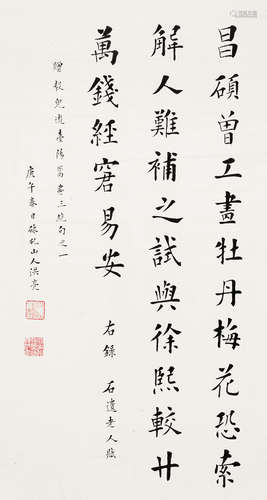 昌碩曾工畫牡丹梅花恐索
解人難補之試與徐熙較廿
萬錢經窘易安 右錄 石遺老人
贈 三絕句之一
庚午春日 山人洪亮